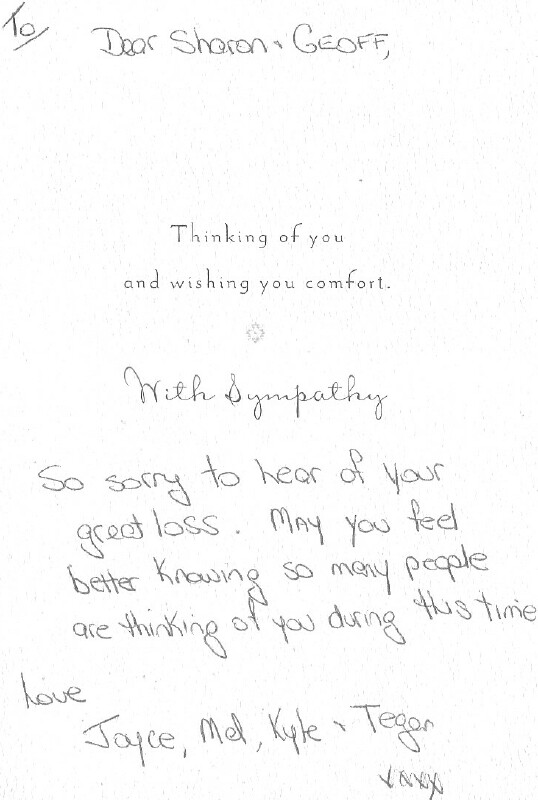 To
Dear Sharon + GEOFF,
Thinking of you
and wishing you comfort.
With Sympathy
So sorry to hear of your
great loss. May you feel
better knowing so many people
are thinking of you during this time
Love
Joyce, Mel, Kyle + Tegan
xxxx